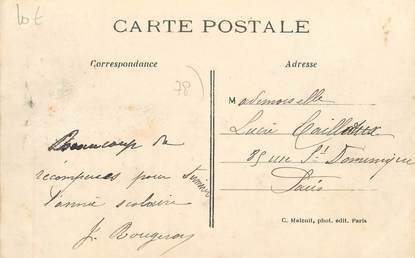 Lot
CARTE POSTALE
Correspondance
Adresse
78)
Mademoiselle
Lucie Cailleteux
35 rue St Dominique
Paris
Beaucoup de
récompenses pour terminer
l'année scolaire
J. Bougeroy
C. Malcuit, phot. édit. Paris